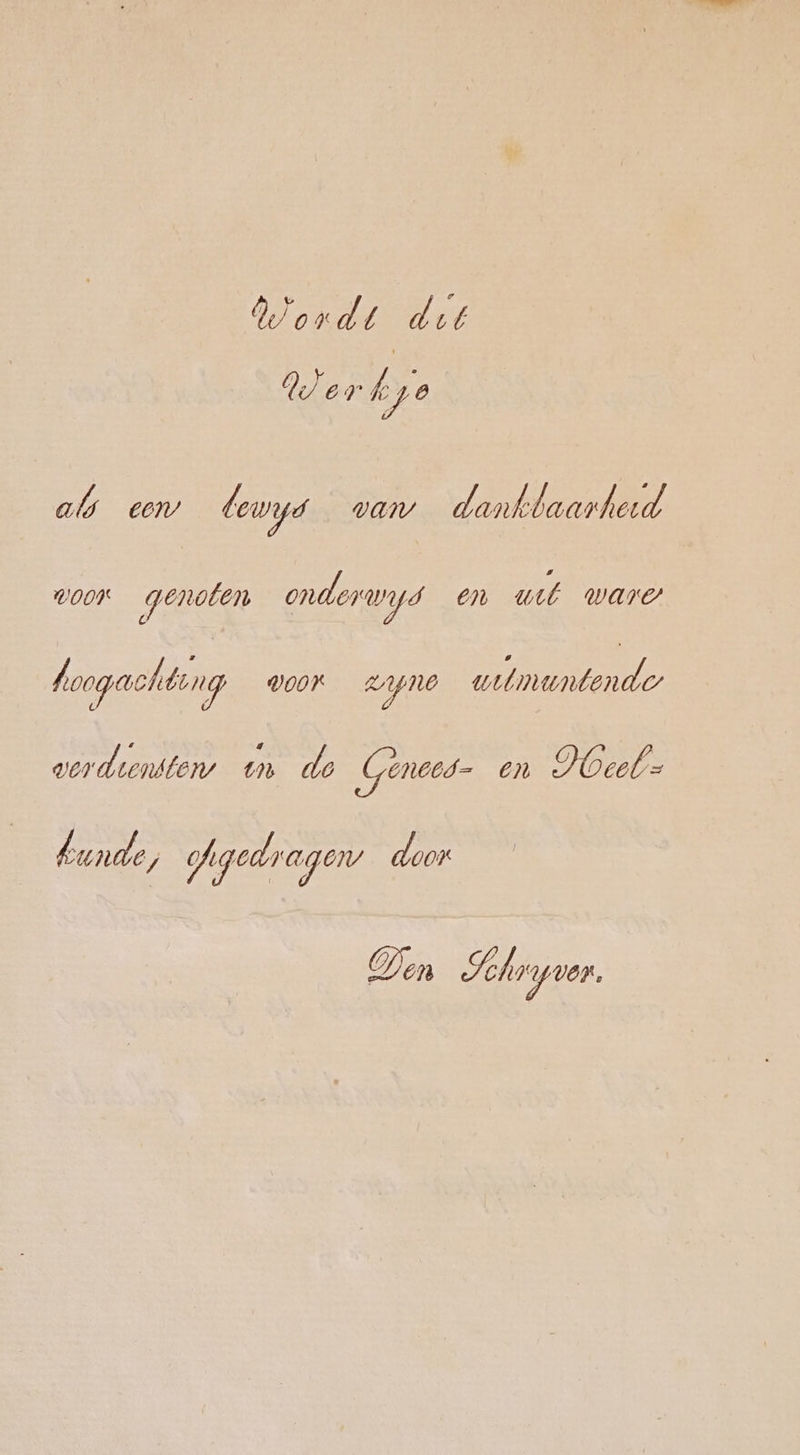 Wordt dit
Werkje
als een bewys van dankbaarheid
voor genoten onderwys en uit ware
hoogachting voor zyne uitmuntende
verdiensten in de Genees- en Heel=
kunde, opgedragen door
Den Schryver.